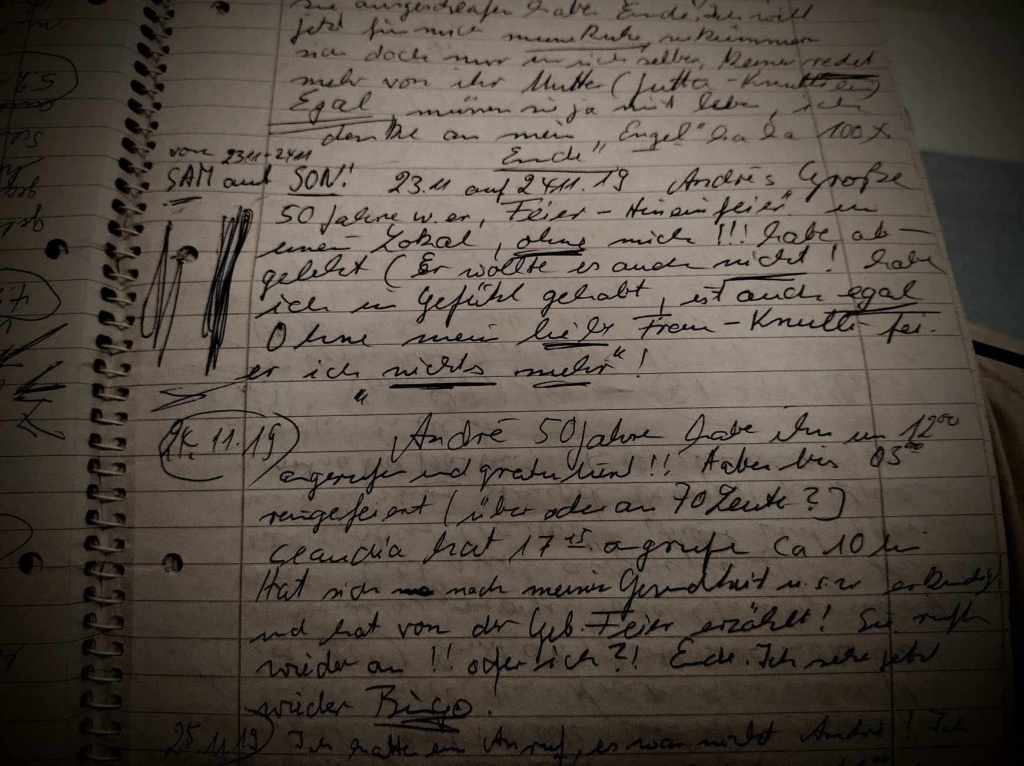 sie ausgeschlafen haben Ende. Ich will
jetzt für mich meine Ruhe,
sich doch nur um sich selber, Keiner redet
mehr von ihr Mutter (Jutta - Knuttilein)
Egal müssen sie ja mit leben, ich
denke an mein "Engel" ha ha 100 x
Ende"
vom 23.11-24.11
SAM auf SON! 23.11 auf 24.11.19 Andrés Große
50 Jahre w. er, Feier - Hineinfeier in
einem Lokal, ohne mich!!! habe ab-
gelehnt (Er wollte es auch nicht! habe
ich im Gefühl gehabt, ist auch egal
Ohne mein liebe Frau - Knutti - fei-
er ich nichts mehr"!
24.11.19 André 50 Jahre habe ihn um 12 00
angerufen und gratuliert!! Haben bis 05 00
reingefeiert (über oder an 70 Leute?)
Claudia hat 17 15 angerufe ca 10
Hat sich nach meiner Gesundheit u.s.w erkundig
und hat von der Geb. Feier erzählt! Sie ruft
wieder an!! oder ich?! Ende. Ich sehe jetzt
wieder Bingo.
25.11.19 Ich hatte ein Anruf, es war nicht André! Ich